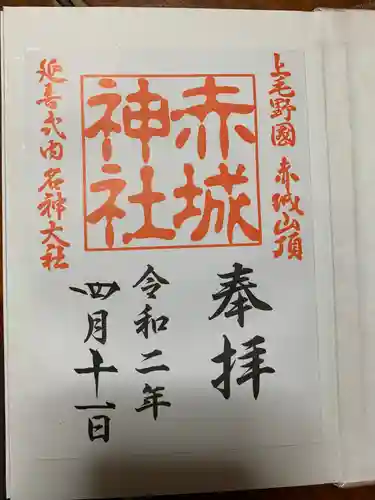 上毛野國 赤城山頂
赤城
神社
延喜式内 名神大社
奉拝
令和二年
四月十一日